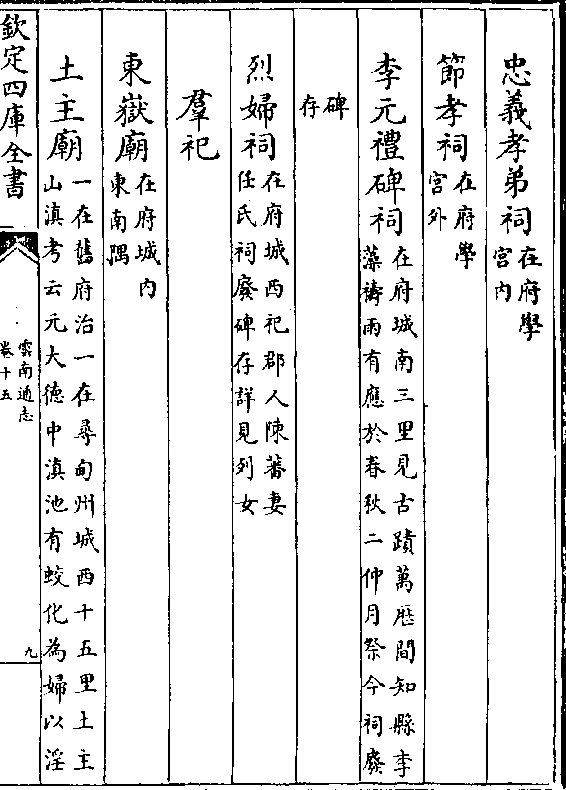 忠義孝弟祠在府學
宮内
節孝祠在府學
宮外
李元禮碑祠在府城南三里見古蹟萬厯間知縣李
藻禱雨有應於春秋二仲月祭今祠廢
碑
存
烈婦祠在府城西祀郡人陳蕃妻
任氏祠廢碑存詳見列女
羣祀
東嶽廟在府城内
東南隅
土主廟一在舊府治一在尋甸州城西十五里土主
山滇考云元大德中滇池有蛟化為婦以淫
欽定四庫全書
雲南通志
卷十五
九